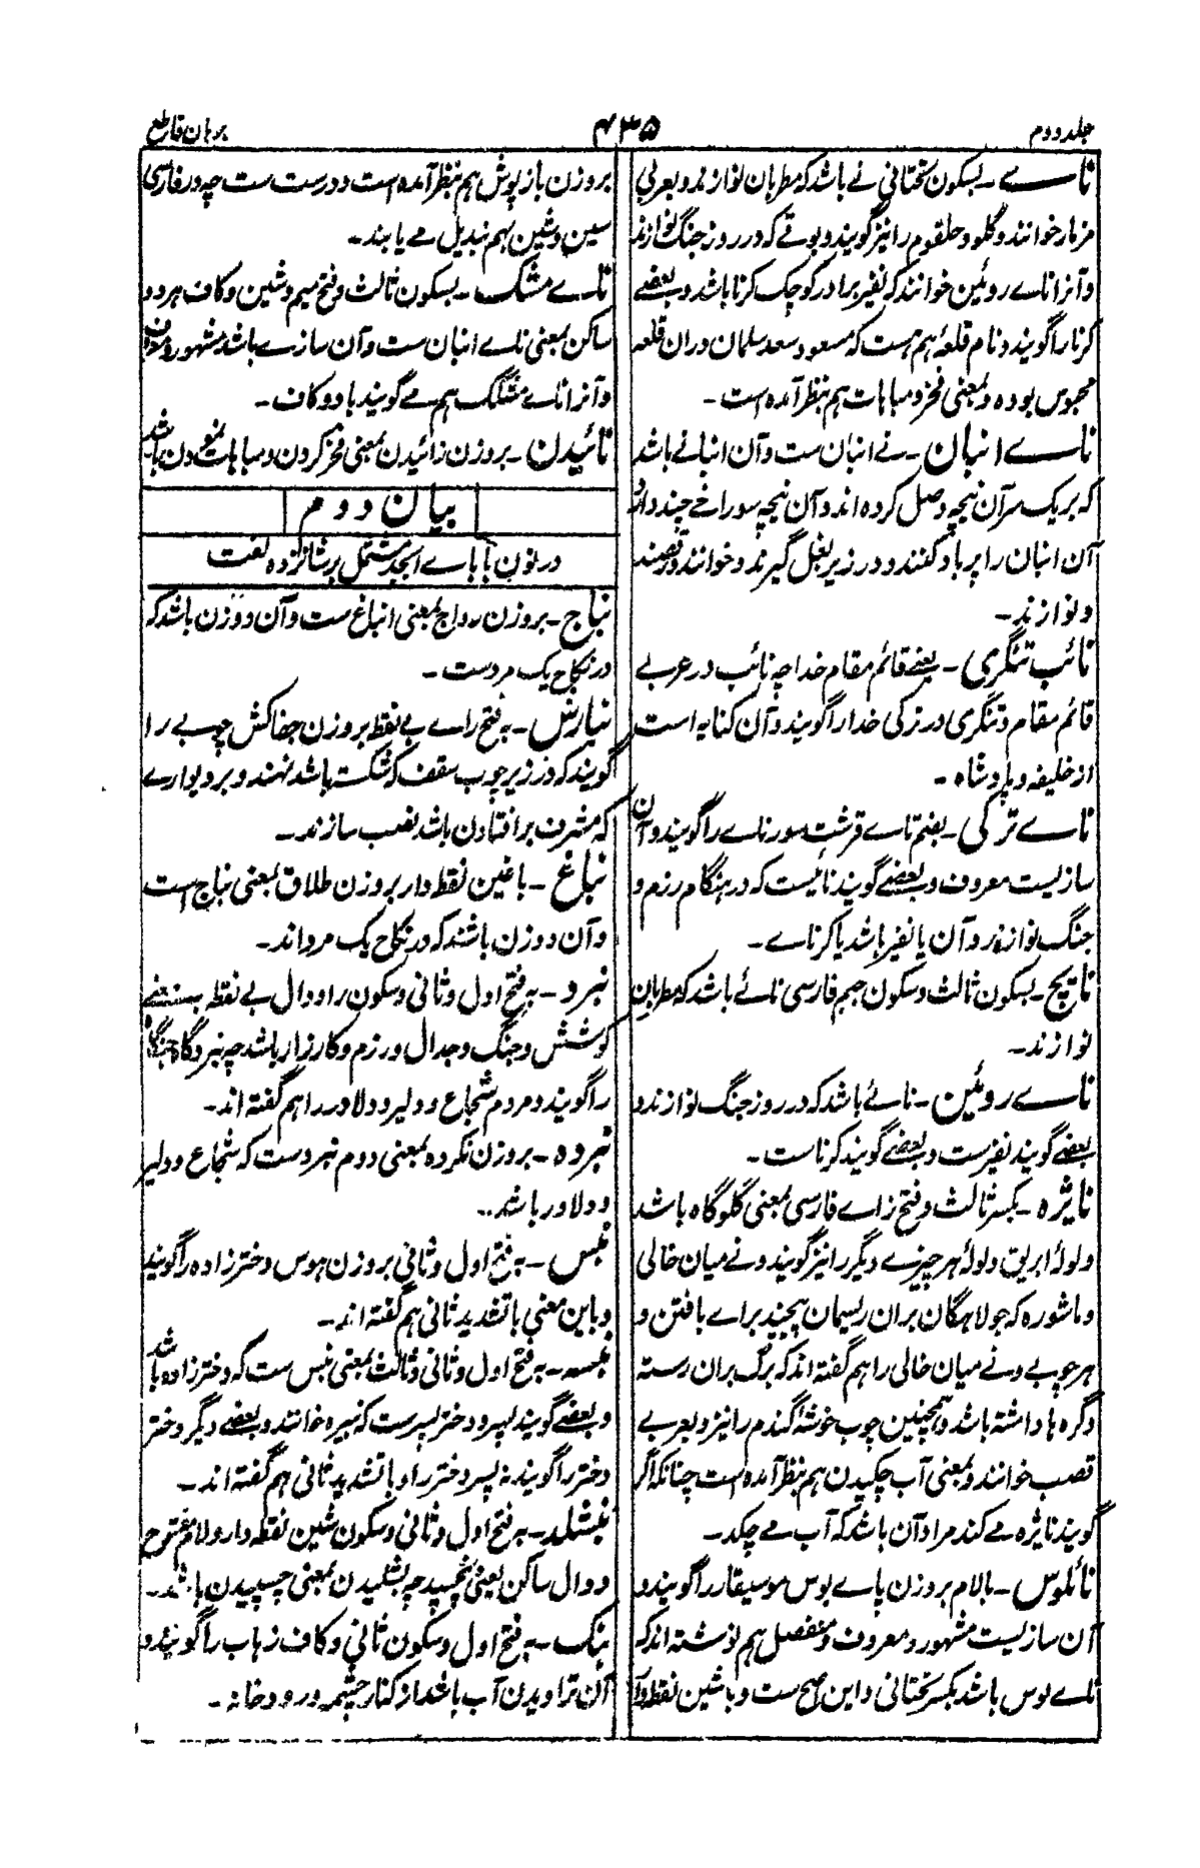 جلد دوم
۴۳۵
برہان قاطع
نائے ـ بسکون تحتانی نے باشد کہ مطربان نوازند و بعربی
مزمار خوانند و گلو و حلقوم را نیز گویند و بوقے کہ در روز جنگ نوازند
و آنرا نائے روئین خوانند کہ نفیر برادر کوچک کرنا باشد و بعضے
کرنا را گویند و نام قلعہ ہم ہست کہ مسعود سعد سلمان دران قلعہ
محبوس بودہ و بمعنی فخر و مباہات ہم بنظر آمدہ است ـ
نائے انبان ـ نے انبان ست و آن انبانے باشد
کہ بر یک سر آن نیچہ وصل کردہ اند و آن نیچہ سوراخے چند دارد
آن انبان را پر باد کنند و در زیر بغل گیرند و خوانند و رقصند
و نوازند ـ
نائب تنگری ـ یعنے قائم مقام خدا چہ نائب در عربی
قائم مقام و تنگری در ترکی خدا را گویند و آن کنایہ است
از خلیفہ و پادشاہ ـ
نائے ترکی ـ بضم تاے قرشت سورنائے را گویند و آن
سازیست معروف و بعضے گویند نائیست کہ در ہنگام رزم و
جنگ نوازند و آن یا نفیر باشد یا کرنائے ـ
نایچ ـ بسکون ثالث و سکون جیم فارسی نائے باشد کہ مطربان
نوازند ـ
نائے روئین ـ نائے باشد کہ در روز جنگ نوازند و
بعضے گویند نفیرست و بعضے گویند کرناست ـ
نایژہ ـ بکسر ثالث و فتح زاے فارسی بمعنی گلوگاہ باشد
و لولۂ ابریق و لولۂ ہر چیزے دیگر را نیز گویند و نے میان خالی
و ماشورہ کہ جولاہگان بران ریسمان پیچند براے بافتن و
ہر چوبے و نے میان خالی را ہم گفتہ اند کہ برگ بران رستہ
و گرہ ہا داشتہ باشد و ہمچنین چوب خوشۂ گندم را نیز و بعربی
قصب خوانند و بمعنی آب چکیدن ہم بنظر آمدہ است چنانکہ اگر
گویند نایژہ مے کند مراد آن باشد کہ آب مے چکد ـ
نائلوس ـ بالام بروزن پاے بوس موسیقار را گویند و
آن سازیست مشہور و معروف و منفصل ہم نوشتہ اند کہ
نائے لوس باشد بکسر تحتانی و این صحیح ست و باشین نقطہ دار
بروزن بازپوش ہم بنظر آمدہ است و درست ست چہ در فارسی
سین و شین بہم تبدیل مے یابند ـ
نائے مشک ـ بسکون ثالث و فتح میم و شین و کاف ہر دو
ساکن بمعنی نائے انبان ست و آن سازے باشد مشہور و معروف
و آنرا نائے مشکک ہم مے گویند با دو کاف ـ
نائیدن ـ بروزن زائیدن بمعنی فخر کردن و مباہات نمودن باشد
بیان دوم
در نون با باے ابجد مشتمل بر شانزدہ لغت
نباج ـ بروزن رواج بمعنی انباغ ست و آن دو زن باشد کہ
در نکاح یک مردست ـ
نبارش ـ بہ فتح راے بے نقطہ بروزن جفاکش چوبے را
گویند کہ در زیر چوب سقف کہ شکستہ باشد نہند و بر دیوارے
کہ مشرف بر افتادن باشد نصب سازند ـ
نباغ ـ باغین نقطہ دار بروزن طلاق بمعنی نباج است
و آن دو زن باشند کہ در نکاح یک مرد اند ـ
نبرد ـ بہ فتح اول و ثانی و سکون را و دال بے نقطہ بمعنی
کوشش و جنگ و جدال و رزم و کارزار باشد چہ نبردگاہ جنگگاہ
را گویند و مردم شجاع و دلیر و دلاور را ہم گفتہ اند ـ
نبردہ ـ بروزن نکردہ بمعنی دوم نبردست کہ شجاع و دلیر
و دلاور باشد ـ
نبس ـ بہ فتح اول و ثانی بروزن ہوس دختر زادہ را گویند
و باین معنی با تشدید ثانی ہم گفتہ اند ـ
نبسہ ـ بہ فتح اول و ثانی و ثالث بمعنی نبس ست کہ دختر زادہ باشد
و بعضے گویند پسر و دختر پسرست کہ نبیرہ خوانند و بعضے دیگر دختر
دختر را گویند نہ پسر دختر را و با تشدید ثانی ہم گفتہ اند ـ
نبشلد ـ بہ فتح اول و ثانی و سکون شین نقطہ دار و لام مفتوح
و دال ساکن یعنی نچسپد چہ بشلیدن بمعنی چسپیدن باشد ـ
نبک ـ بہ فتح اول و سکون ثانی و کاف زہاب را گویند و
آن تراویدن آب باشد از کنار چشمہ و رودخانہ ـ